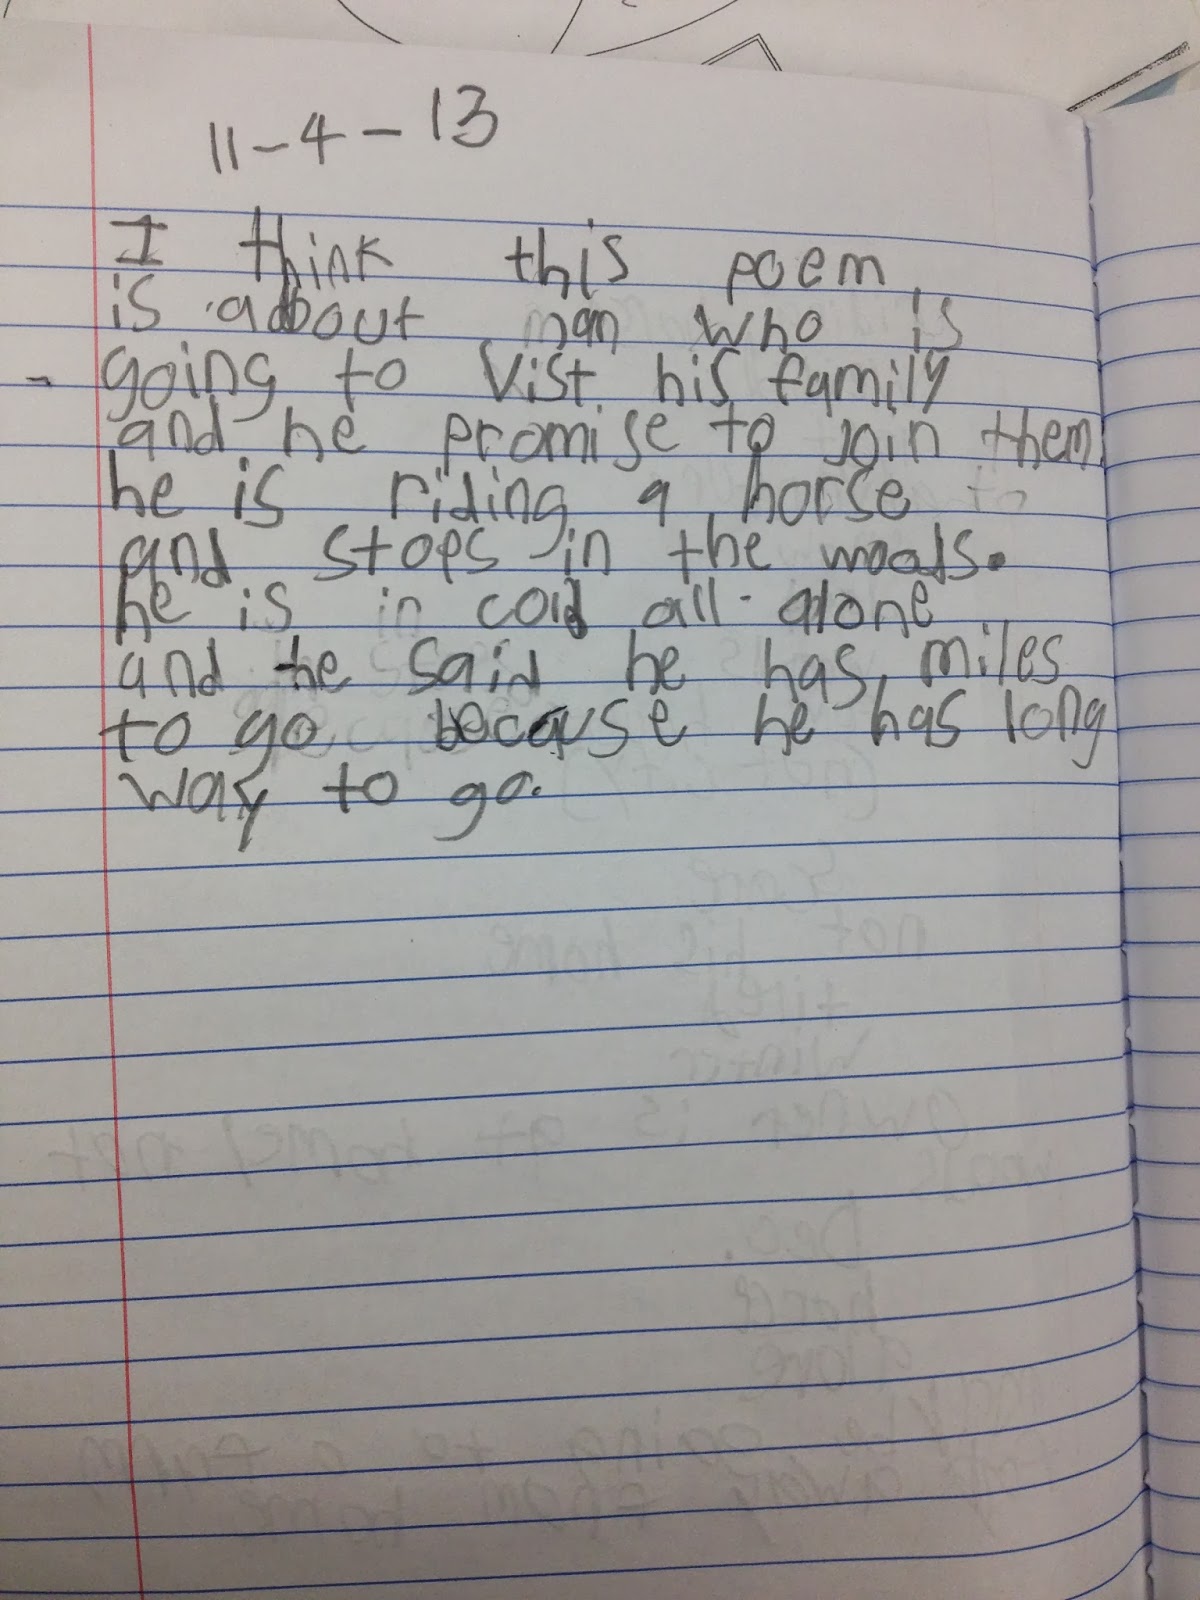 11-4-13
I think this poem
is adbout man who is
going to Vist his family
and he promise to join them
he is riding a horse
and stops in the woods.
he is in cold all alone
and he said he has miles
to go because he has long
way to go.